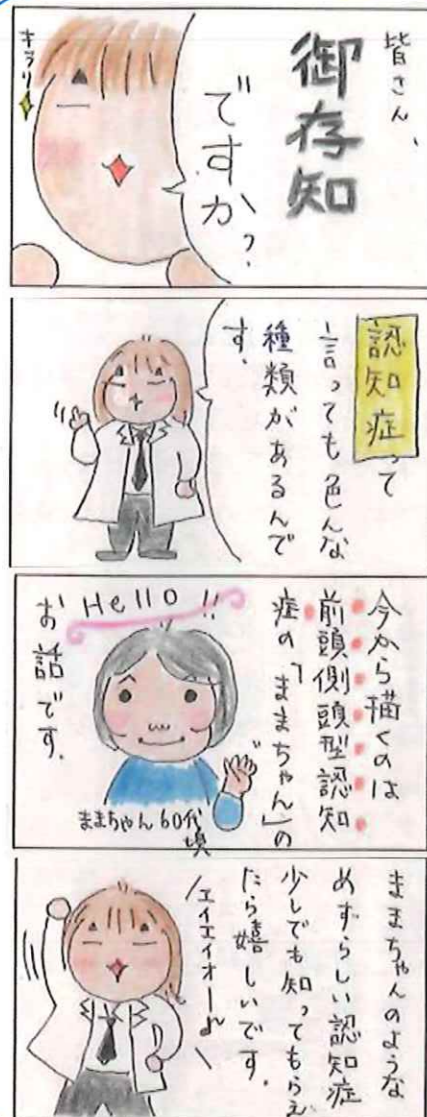 皆さん、
御存知
ですか?
キラリー
認知症って
言っても色んな
種類があるんで
す。
今から描くのは
前頭側頭型認知
症の「ままちゃん」の
お話です。
Hello!!
ままちゃん60代
頃
ままちゃんのような
めずらしい認知症
少しでも知ってもらえ
たら嬉しいです。
エイエイオー♪